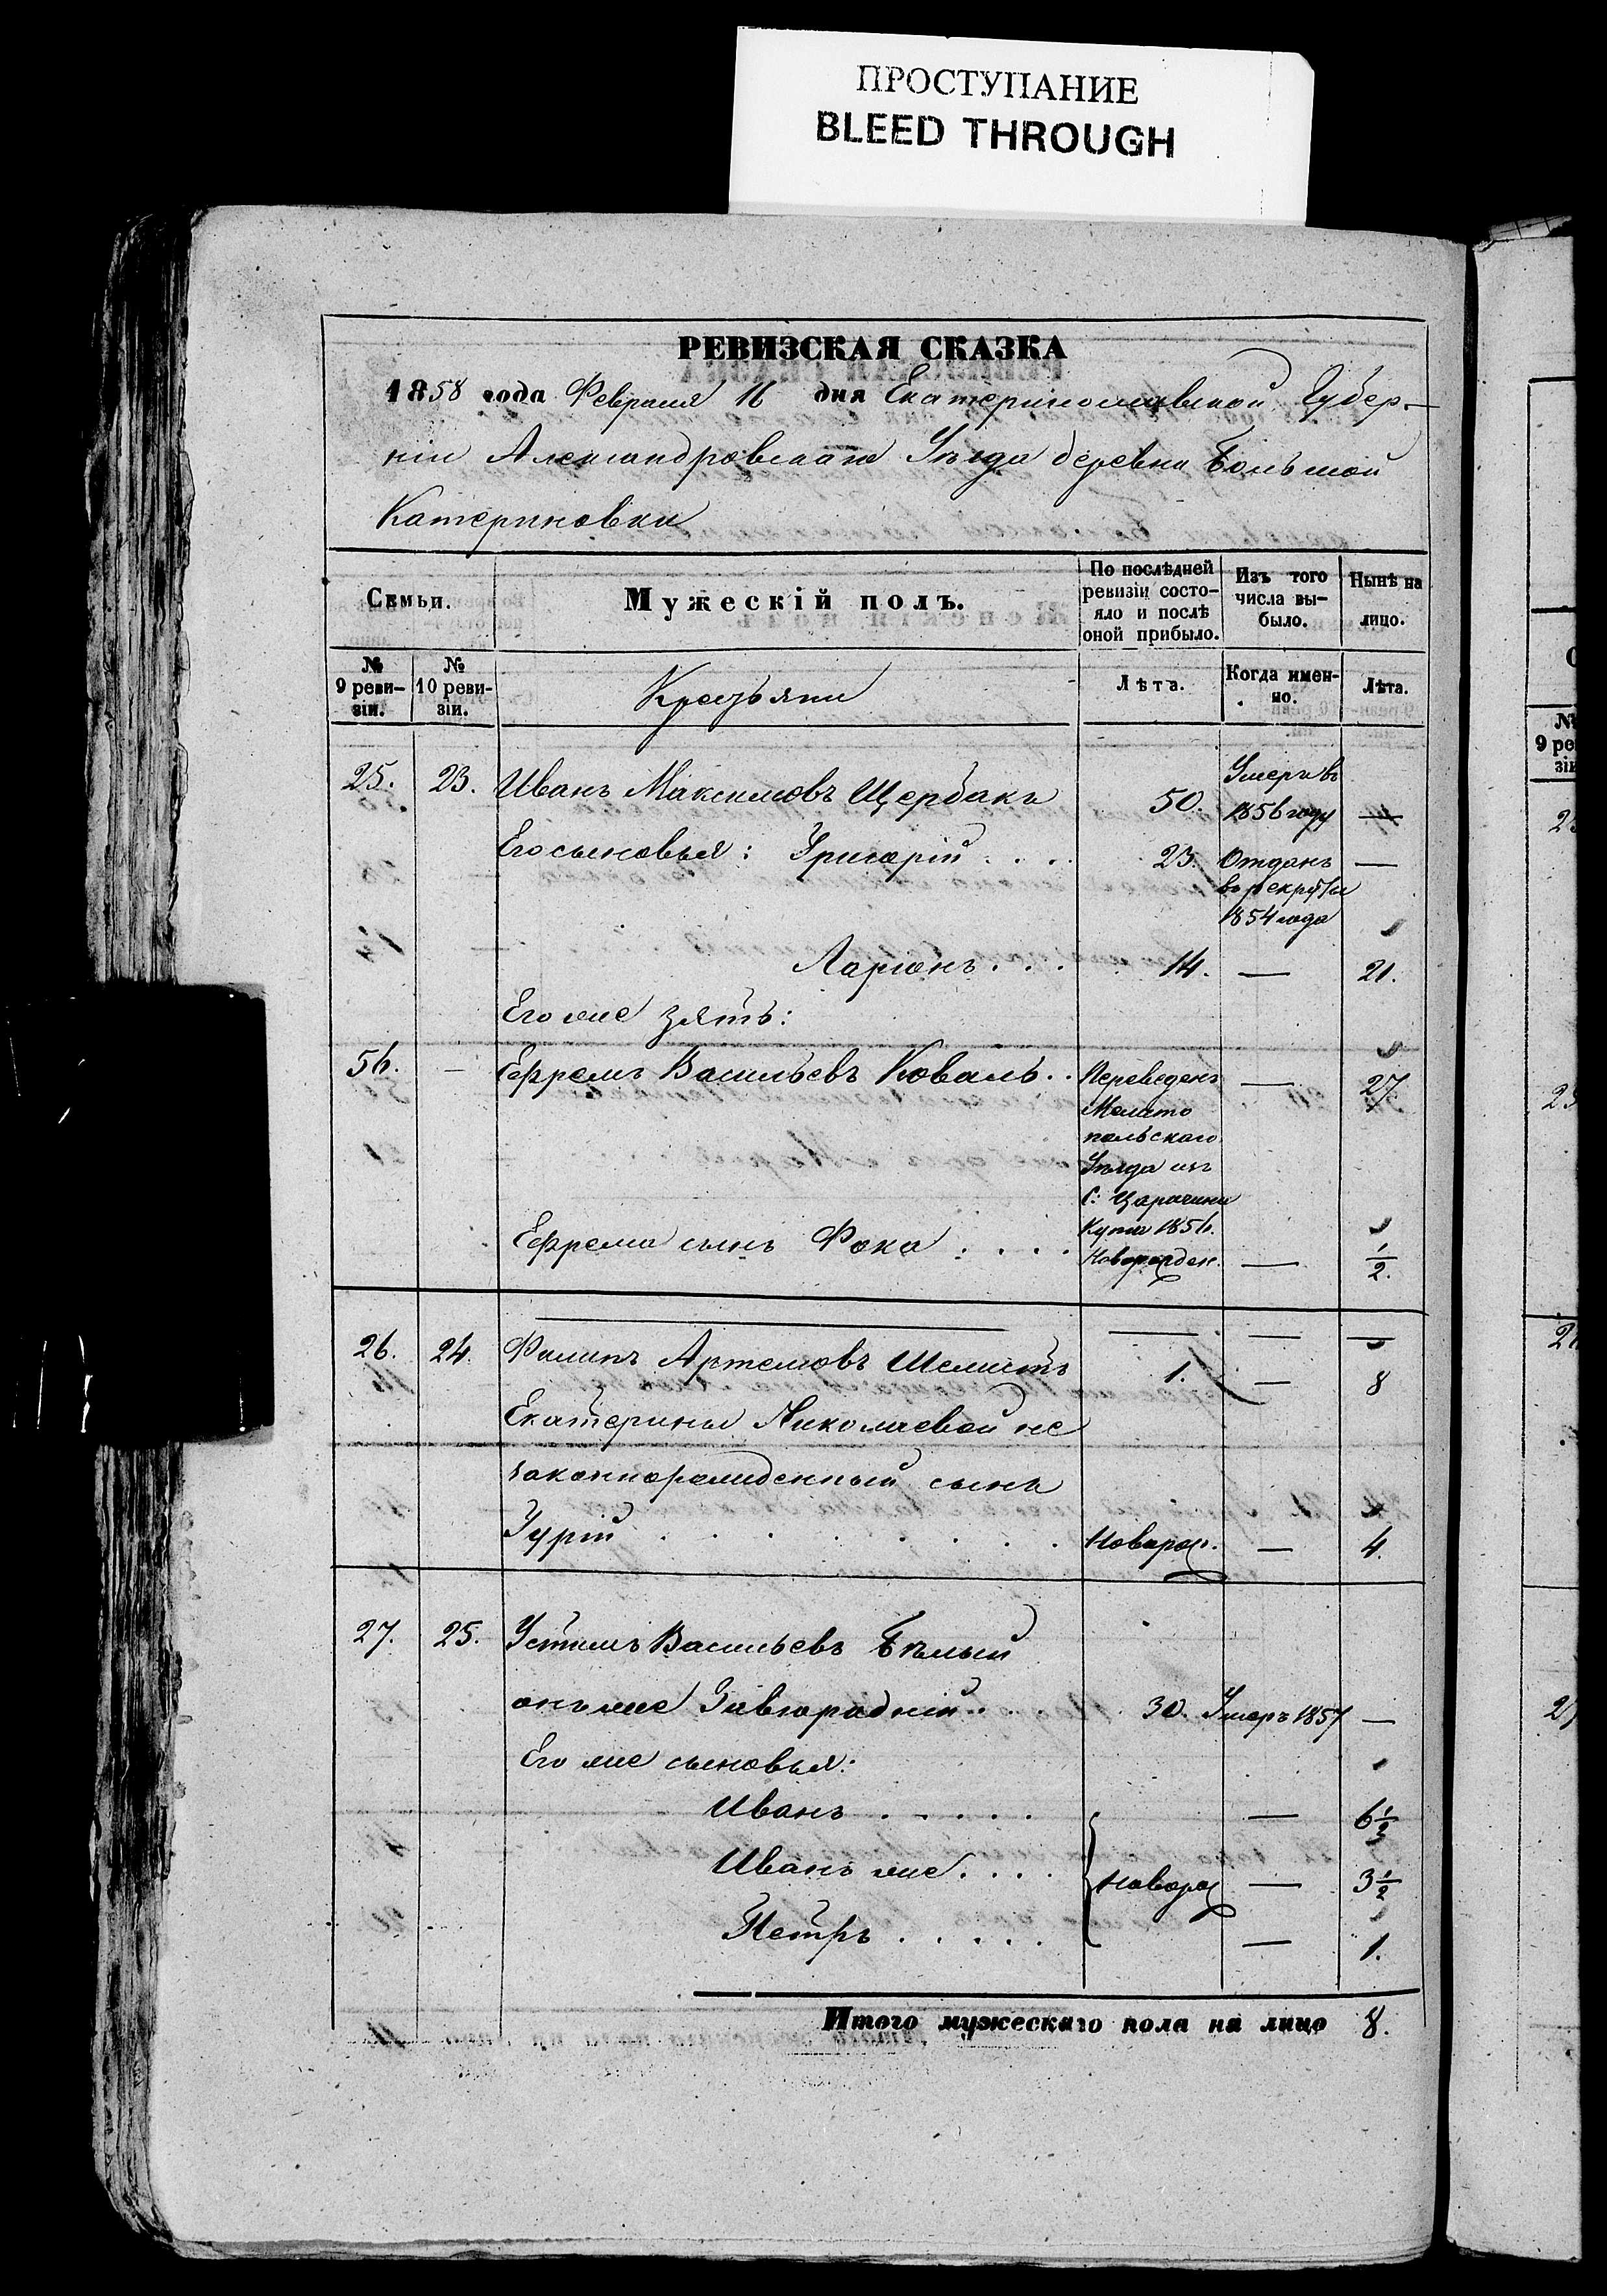 ПРОСТУПАНИЕ
BLEED THROUGH
РЕВИЗСКАЯ СКАЗКА
1858 года Февраля 16 дня Екатеринославской Губер-
ніи Александровскаго Уѣзда деревни Большой
Катериновки
Семьи.
Мужескій полъ.
По послѣдней ревизіи состо-яло и послѣ оной прибыло.
Изъ того числа вы-было.
Нынѣ на лицо.
№ 9 реви-зіи.
№ 10 реви-зіи.
Крестьяни
Лѣта.
Когда имен-но.
Лѣта.
25. 23. Иванъ Максимовъ Щербакъ 50. Умеръ въ 1856 году —
Его сыновья: Григорій . . . . 23. Отданъ въ рекруты 1854 года —
Ларіонъ . . . 14. — 21.
Его же зять:
56. — Ефремъ Васильевъ Коваль . . Переведенъ — 27
Мелито
польскаго
Уѣзда изъ
С:
Кута 1856.
Ефрема сынъ Фока . . . . Новорожден. — 1/2.
26. 24. Филипъ Артемовъ 1. — 8
Екатерины Николаевой не
законнорожденный сынъ
Гурій . . . . . . . Новорож. — 4.
27. 25. Устимъ Васильевъ Бѣлый
онъ же 30. Умеръ 1857 —
Его же сыновья:
Иванъ . . . . . — 6 1/2
Иванъ же . . . . Новорож — 3 1/2
Петръ . . . . . — 1.
Итого мужескаго пола на лицо 8.
№
9 ре
зі